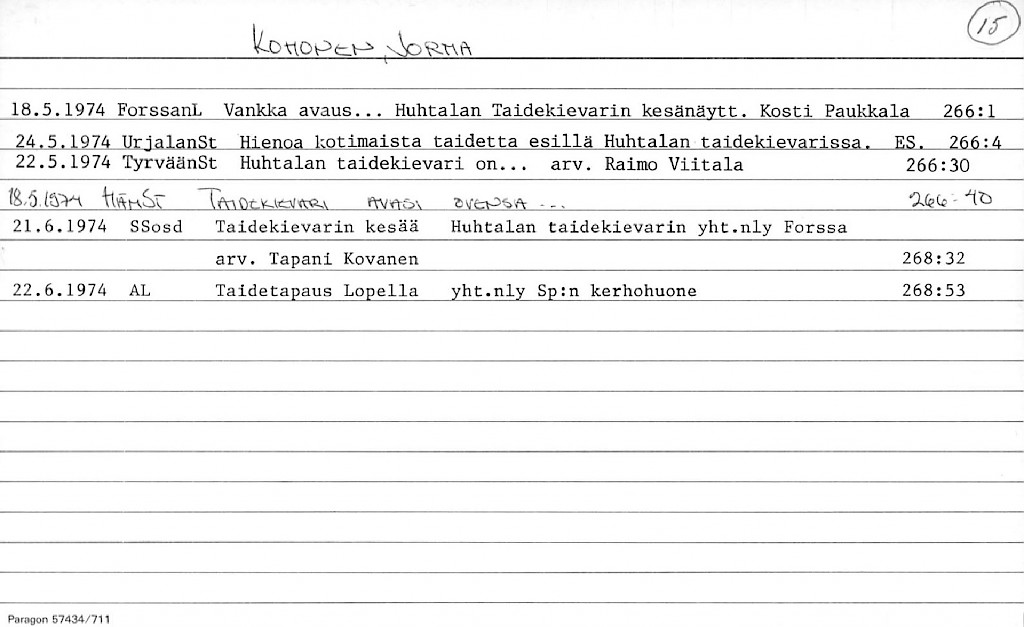 15
KOMONEN, JORMA
18.5.1974 ForssanL Vankka avaus... Huhtalan Taidekievarin kesänäytt. Kosti Paukkala 266:1
24.5.1974 UrjalanSt Hienoa kotimaista taidetta esillä Huhtalan taidekievarissa. ES. 266:4
22.5.1974 TyrväänSt Huhtalan taidekievari on... arv. Raimo Viitala 266:30
18.5.1974 HÄMST TAIDEKIEVARI AVASI OVENSA ... 266:40
21.6.1974 SSosd Taidekievarin kesää Huhtalan taidekievarin yht.nly Forssa
arv. Tapani Kovanen 268:32
22.6.1974 AL Taidetapaus Lopella yht.nly Sp:n kerhohuone 268:53
Paragon 57434/711